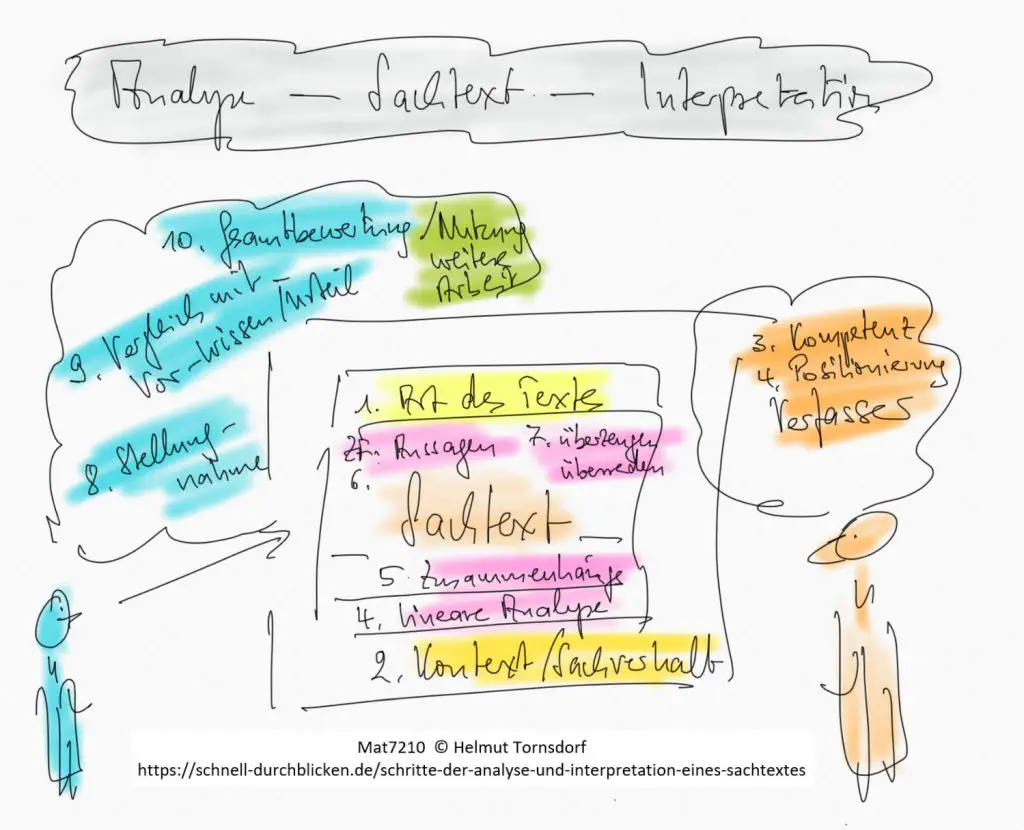 Analyse — Sachtext — Interpretation
10. Gesamtbewertung / Nutzung
weitere
Arbeit
9. Vergleich mit
Vor-wissen/Urteil
8. Stellung-
nahme
3. Kompetenz
4. Positionierung
Verfasser
1. Art des Textes
Aussagen
6.
7. überzeugen
überreden
Sachtext
5. Zusammenhänge
4. lineare Analyse
2. Kontext/Sachverhalt
Mat7210 © Helmut Tornsdorf
https://schnell-durchblicken.de/schritte-der-analyse-und-interpretation-eines-sachtextes